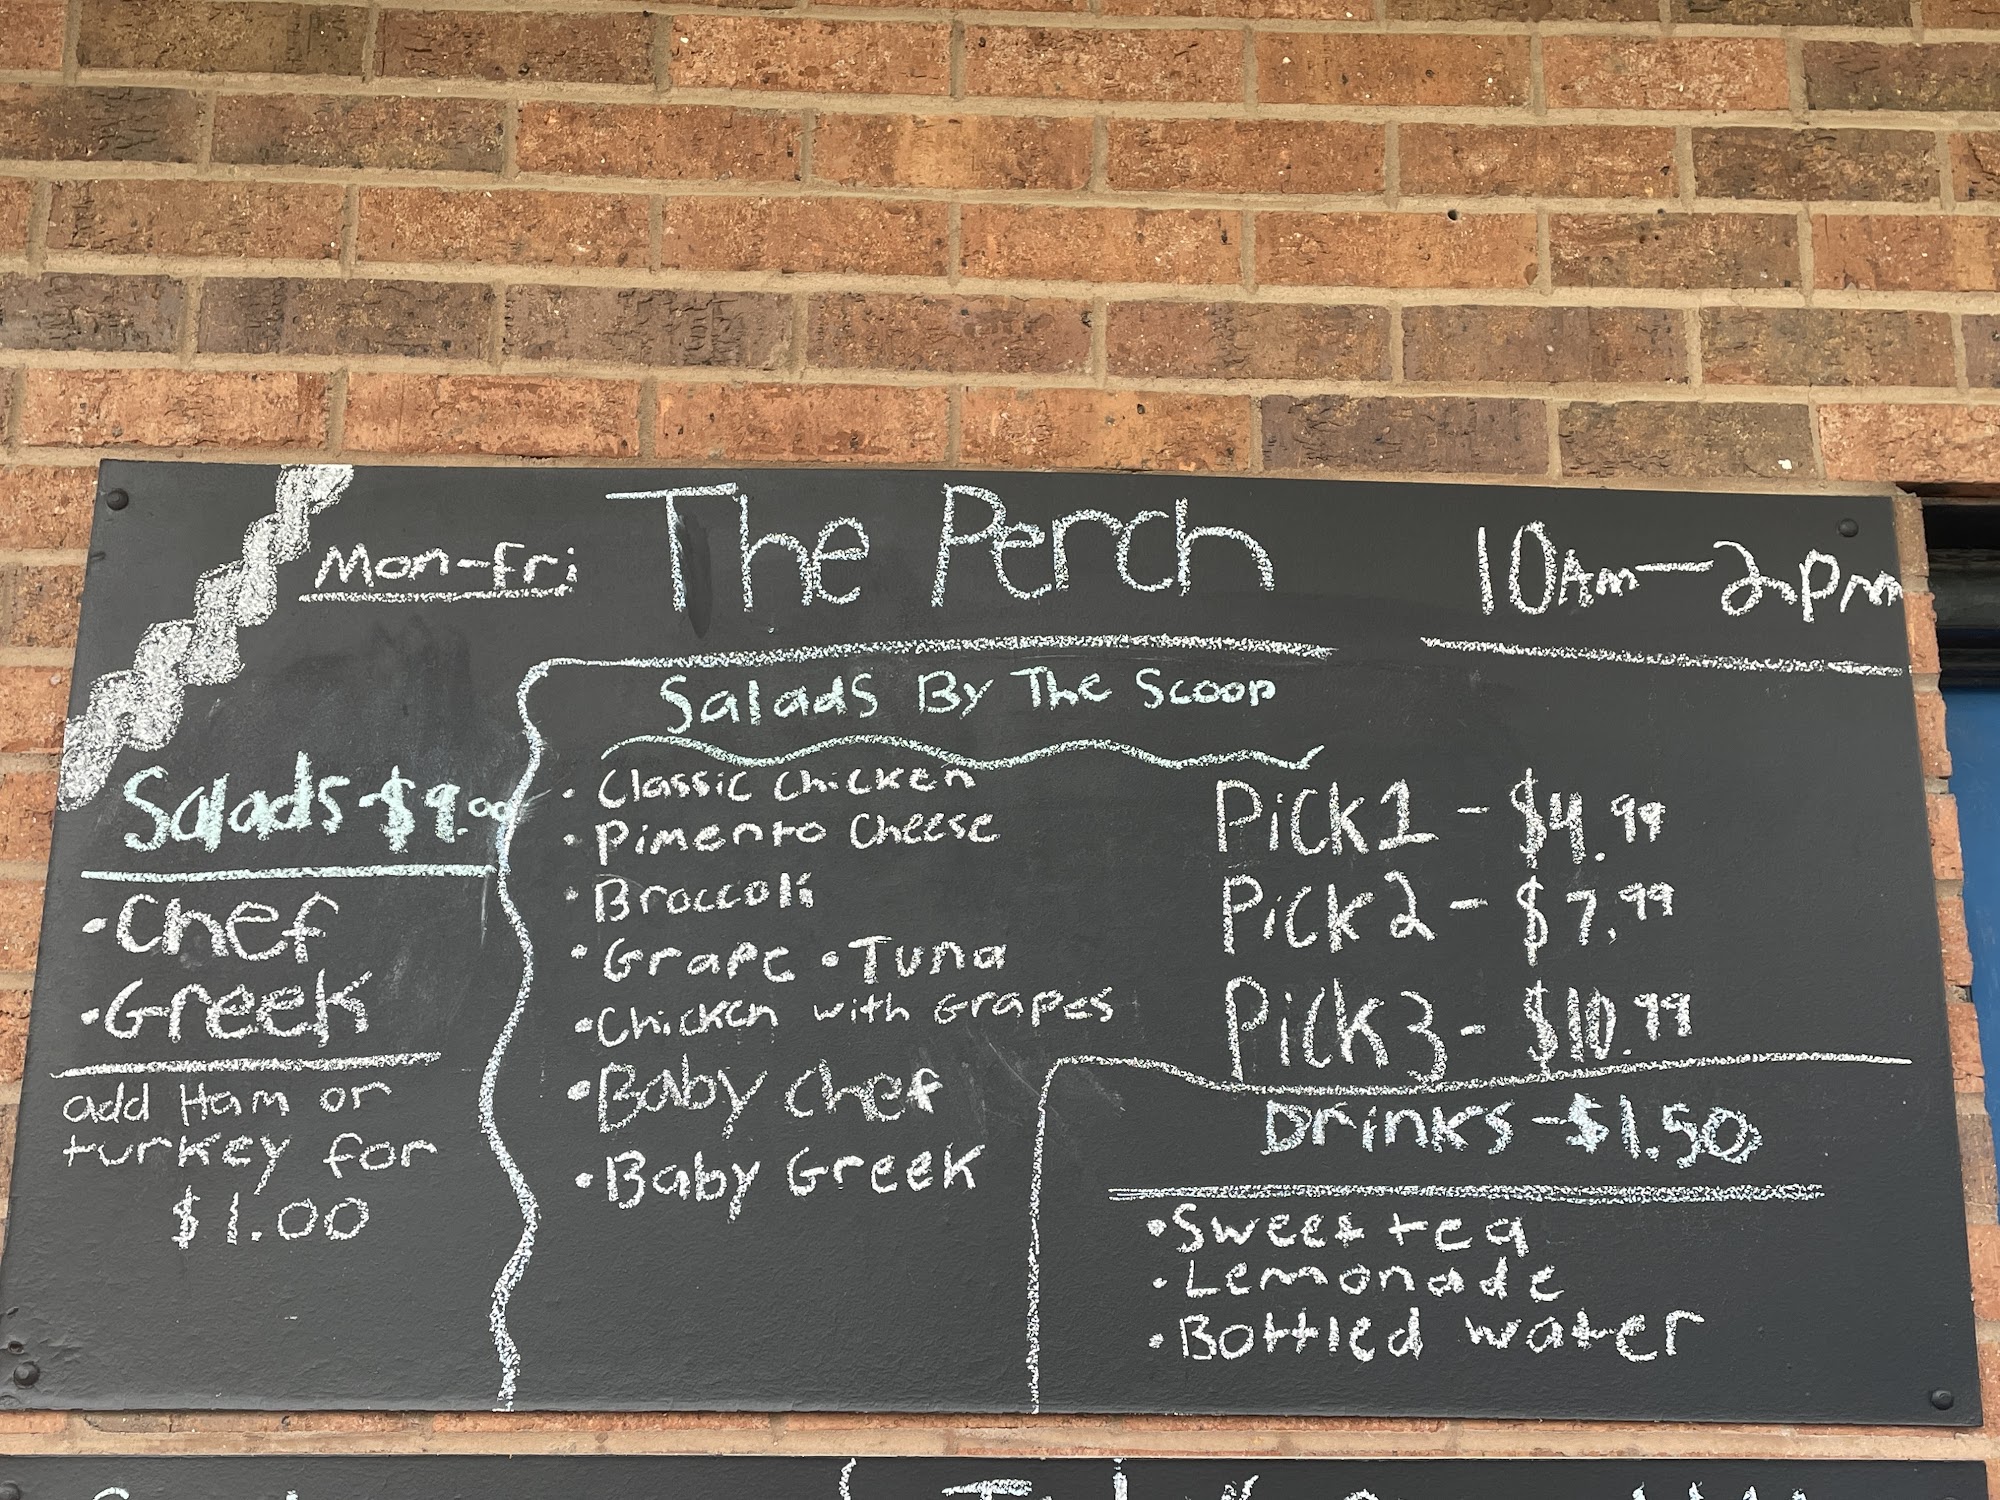 Mon-Fri
The Perch
10AM-2PM
Salads-$9.00
•Chef
•Greek
add Ham or
turkey for
$1.00
Salads By The Scoop
• Classic Chicken
• Pimento Cheese
• Broccoli
• Grape • Tuna
• Chicken with Grapes
• Baby Chef
• Baby Greek
Pick 1 - $4.99
Pick 2 - $7.99
Pick 3 - $10.99
Drinks - $1.50
• Sweet tea
• Lemonade
• Bottled water